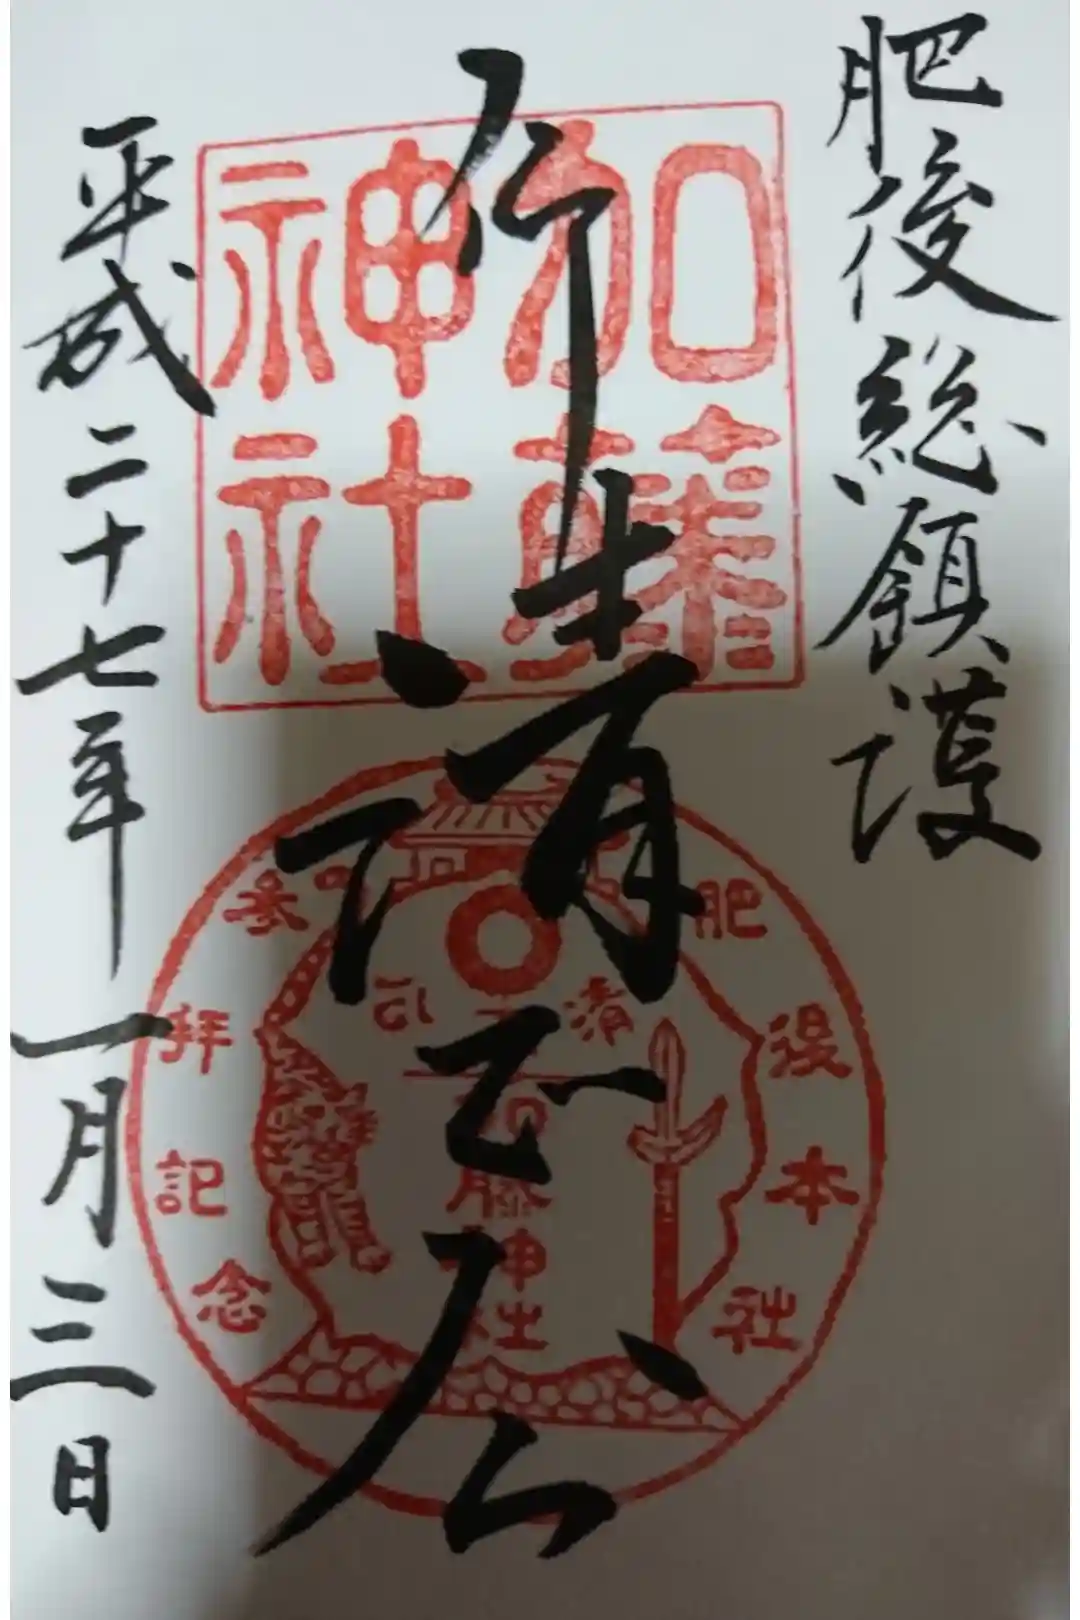 肥後総鎮護
清正公
平成二十七年一月三日
加藤神社
肥後本社
参拝記念
清正公
加藤神社